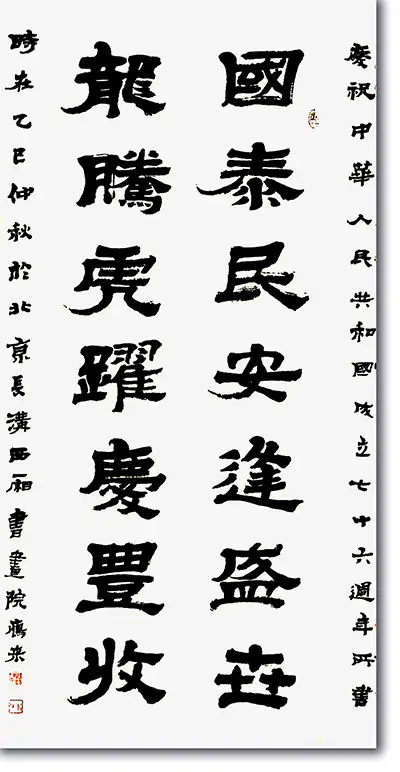 慶祝中華人民共和國成立七十六週年所書
國泰民安逢盛世
龍騰虎躍慶豐收
時在乙巳仲秋於北京長溝西廂書畫院鴻来